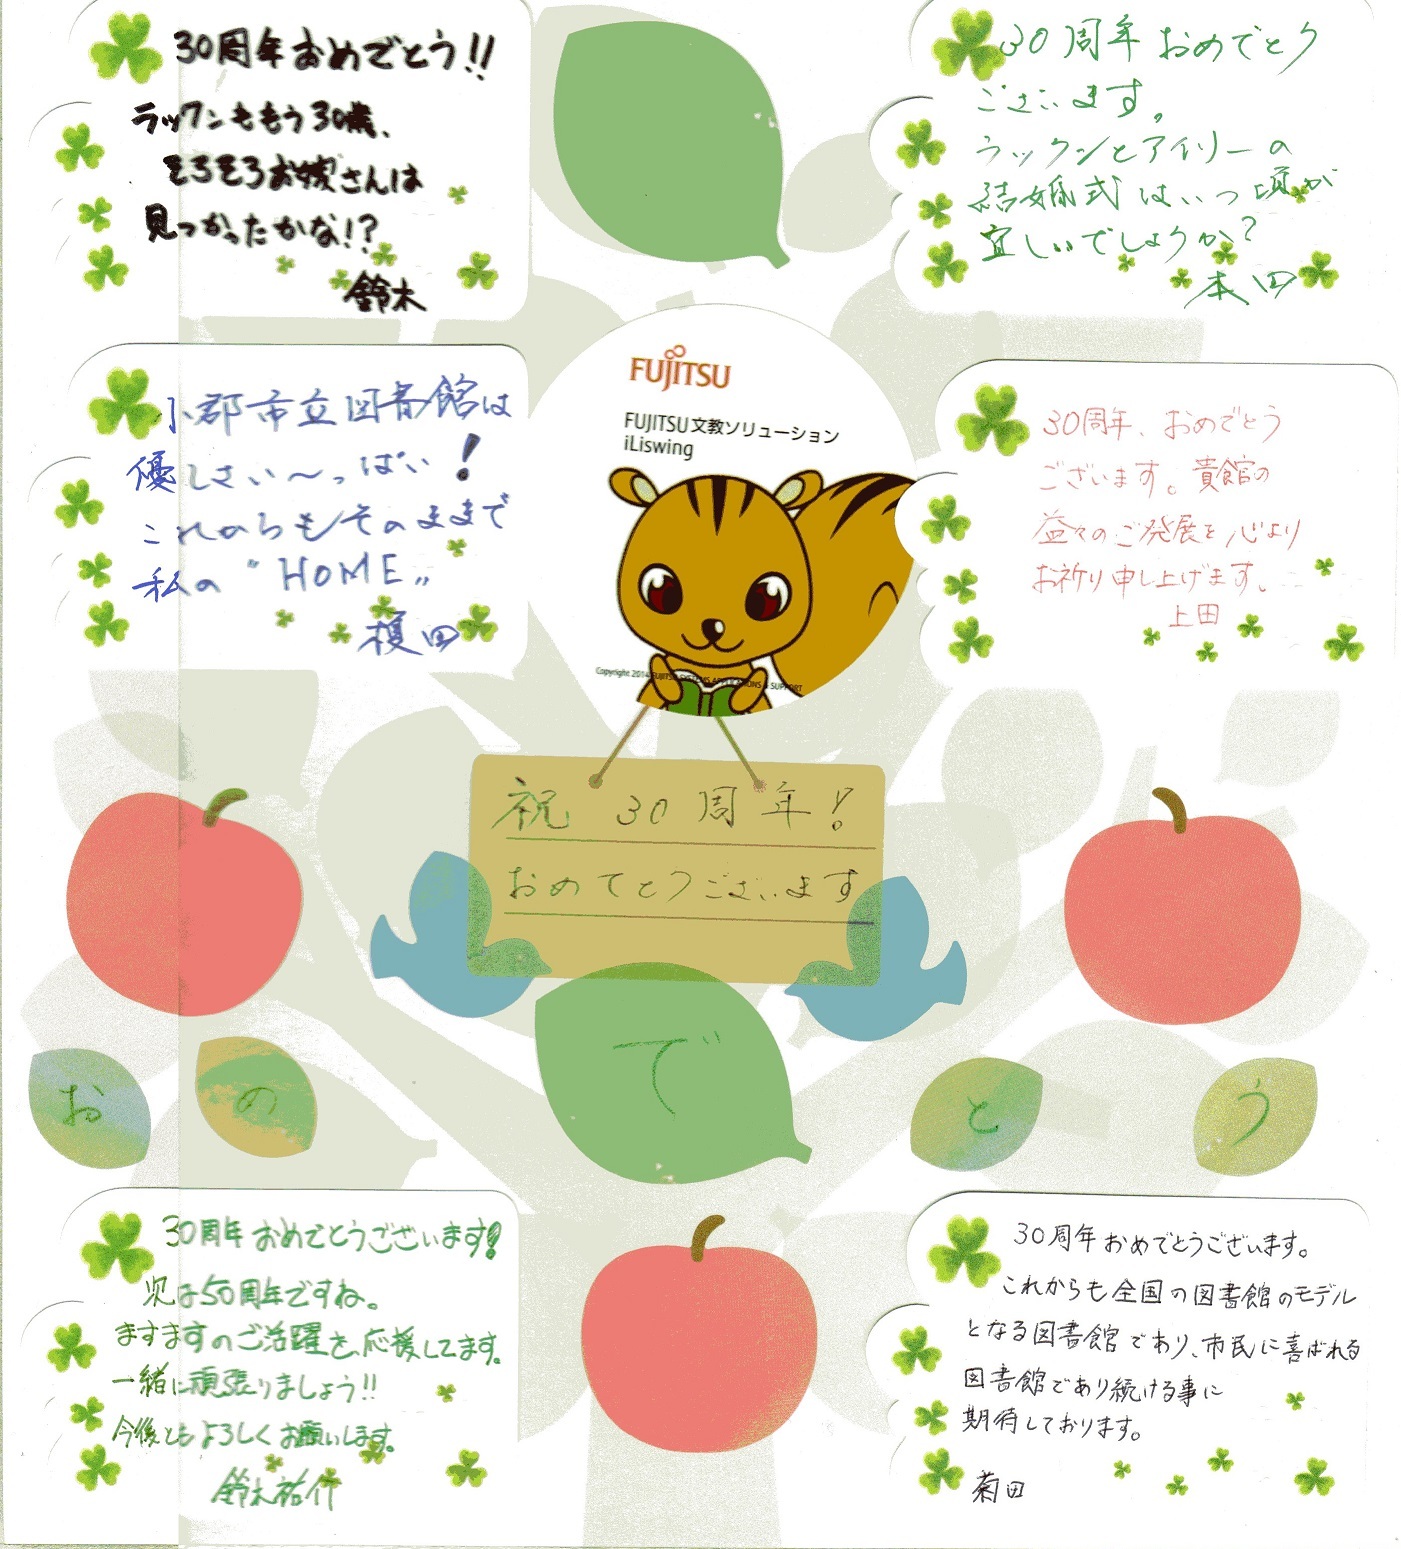 30周年おめでとう!!
ラックンももう30歳、
そろそろお嫁さんは
見つかったかな!?
鈴木
30周年おめでとう
ございます。
ラックンとアイリーの
結婚式はいつ頃が
宜しいでしょうか?
本田
小郡市立図書館は
優しさい〜っぱい!
これからもそのままで
私の"HOME"
榎田
FUJITSU
FUJITSU 文教ソリューション
iLiswing
Copyright 2014 FUJITSU SYSTEMS APPLICATIONS & SUPPORT
30周年、おめでとう
ございます。貴館の
益々のご発展を心より
お祈り申し上げます。
上田
祝 30周年!
おめでとうございます
お め で と う
30周年おめでとうございます!
次は50周年ですね。
ますますのご活躍を応援してます。
一緒に頑張りましょう!!
今後ともよろしくお願いします。
鈴木祐介
30周年おめでとうございます。
これからも全国の図書館のモデル
となる図書館であり、市民に喜ばれる
図書館であり続ける事に
期待しております。
菊田